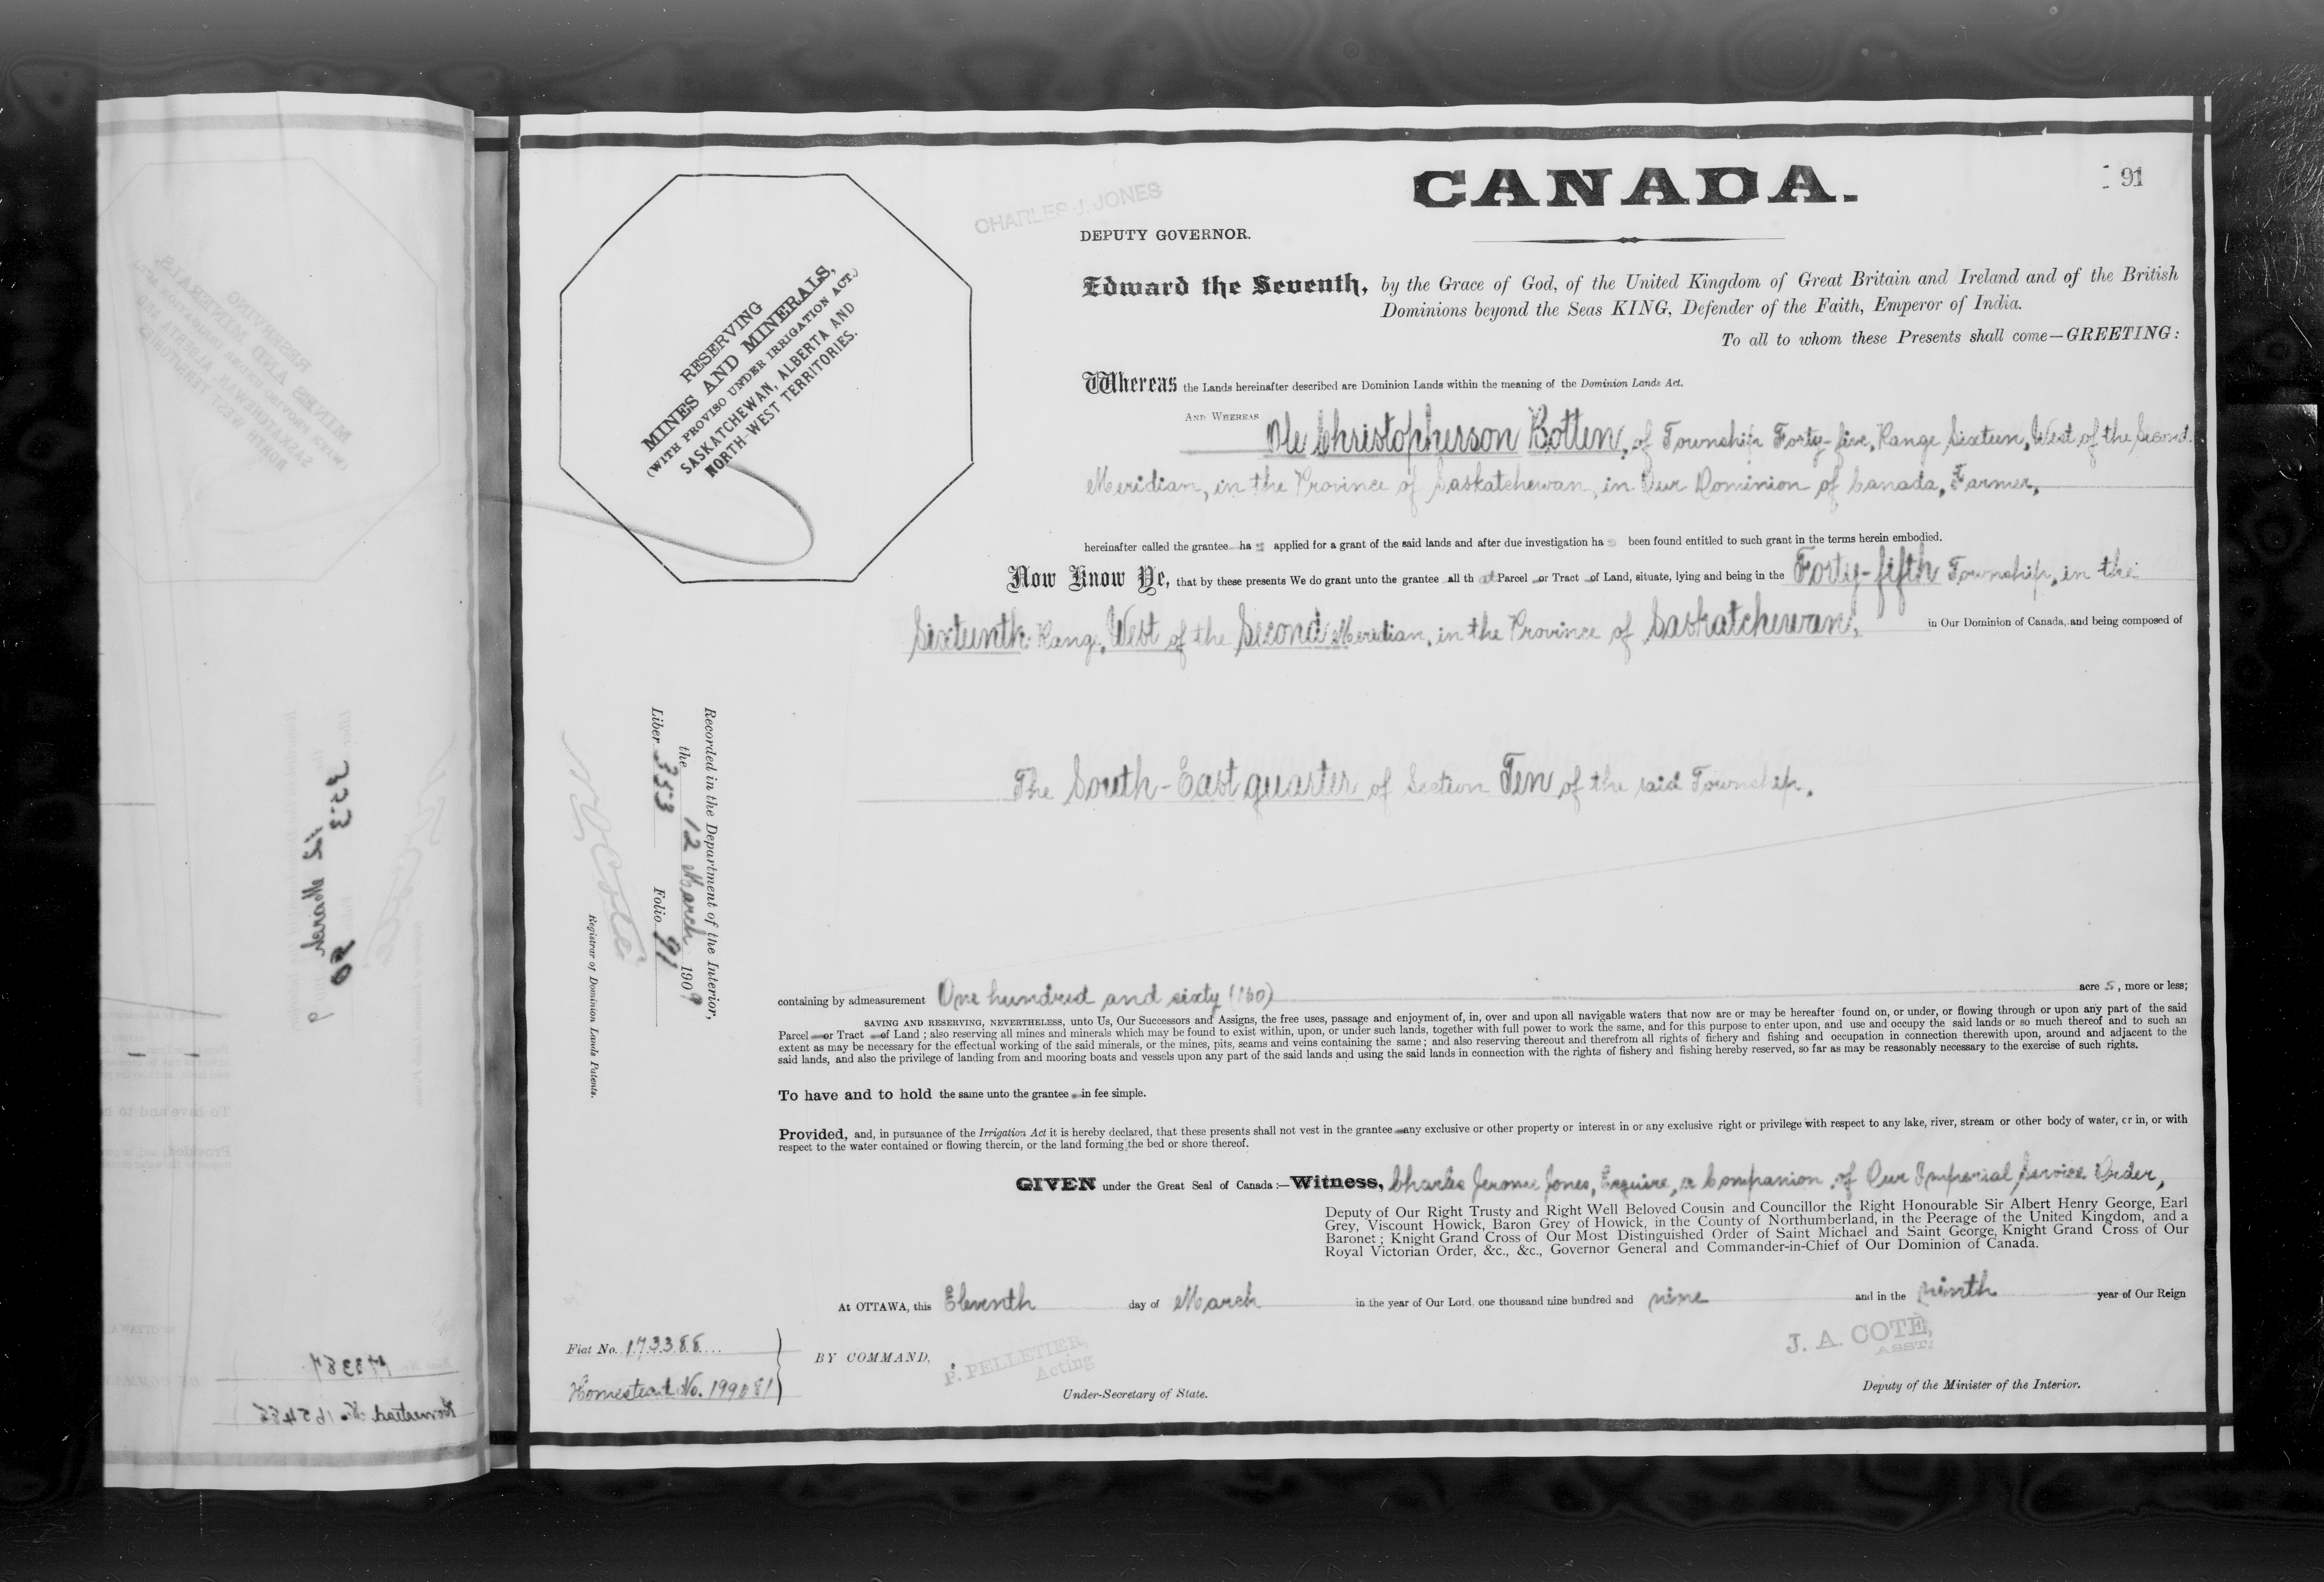 CANADA.
91
CHARLES J. JONES
DEPUTY GOVERNOR.
RESERVING
MINES AND MINERALS,
(WITH PROVISO UNDER IRRIGATION ACT.)
SASKATCHEWAN, ALBERTA AND
NORTH-WEST TERRITORIES.
Edward the Seventh, by the Grace of God, of the United Kingdom of Great Britain and Ireland and of the British
Dominions beyond the Seas KING, Defender of the Faith, Emperor of India.
To all to whom these Presents shall come—GREETING:
Whereas the Lands hereinafter described are Dominion Lands within the meaning of the Dominion Lands Act.
AND WHEREAS Ole Christopherson Botten, of Township Forty-five, Range Sixteen, West of the Second
Meridian, in the Province of Saskatchewan, in Our Dominion of Canada, Farmer,
hereinafter called the grantee has applied for a grant of the said lands and after due investigation has been found entitled to such grant in the terms herein embodied.
Now Know Ye, that by these presents We do grant unto the grantee all that Parcel or Tract of Land, situate, lying and being in the Forty-fifth Township, in the
Sixteenth Range, West of the Second Meridian, in the Province of Saskatchewan, in Our Dominion of Canada, and being composed of
The South-East quarter of Section Ten of the said Township.
Recorded in the Department of the Interior,
the 12 March 1909
Liber 353 Folio 91
Registrar of Dominion Lands Patents.
containing by admeasurement One hundred and sixty (160) acres, more or less;
SAVING AND RESERVING, NEVERTHELESS, unto Us, Our Successors and Assigns, the free uses, passage and enjoyment of, in, over and upon all navigable waters that now are or may be hereafter found on, or under, or flowing through or upon any part of the said
Parcel or Tract of Land; also reserving all mines and minerals which may be found to exist within, upon, or under such lands, together with full power to work the same, and for this purpose to enter upon, and use and occupy the said lands or so much thereof and to such an
extent as may be necessary for the effectual working of the said minerals, or the mines, pits, seams and veins containing the same; and also reserving thereout and therefrom all rights of fishery and fishing and occupation in connection therewith upon, around and adjacent to the
said lands, and also the privilege of landing from and mooring boats and vessels upon any part of the said lands and using the said lands in connection with the rights of fishery and fishing hereby reserved, so far as may be reasonably necessary to the exercise of such rights.
To have and to hold the same unto the grantee in fee simple.
Provided, and, in pursuance of the Irrigation Act it is hereby declared, that these presents shall not vest in the grantee any exclusive or other property or interest in or any exclusive right or privilege with respect to any lake, river, stream or other body of water, or in, or with
respect to the water contained or flowing therein, or the land forming the bed or shore thereof.
GIVEN under the Great Seal of Canada:—Witness, Charles Jerome Jones, Esquire, a Companion of Our Imperial Service Order,
Deputy of Our Right Trusty and Right Well Beloved Cousin and Councillor the Right Honourable Sir Albert Henry George, Earl
Grey, Viscount Howick, Baron Grey of Howick, in the County of Northumberland, in the Peerage of the United Kingdom, and a
Baronet; Knight Grand Cross of Our Most Distinguished Order of Saint Michael and Saint George, Knight Grand Cross of Our
Royal Victorian Order, &c., &c., Governor General and Commander-in-Chief of Our Dominion of Canada.
At OTTAWA, this Eleventh day of March in the year of Our Lord, one thousand nine hundred and nine and in the ninth year of Our Reign
Fiat No. 173388
Homestead No. 199081
BY COMMAND,
P. PELLETIER,
Acting
Under-Secretary of State.
J. A. COTÉ,
ASST.
Deputy of the Minister of the Interior.